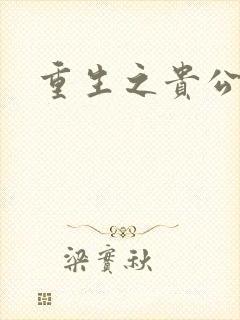 重生之貴公
梁實秋